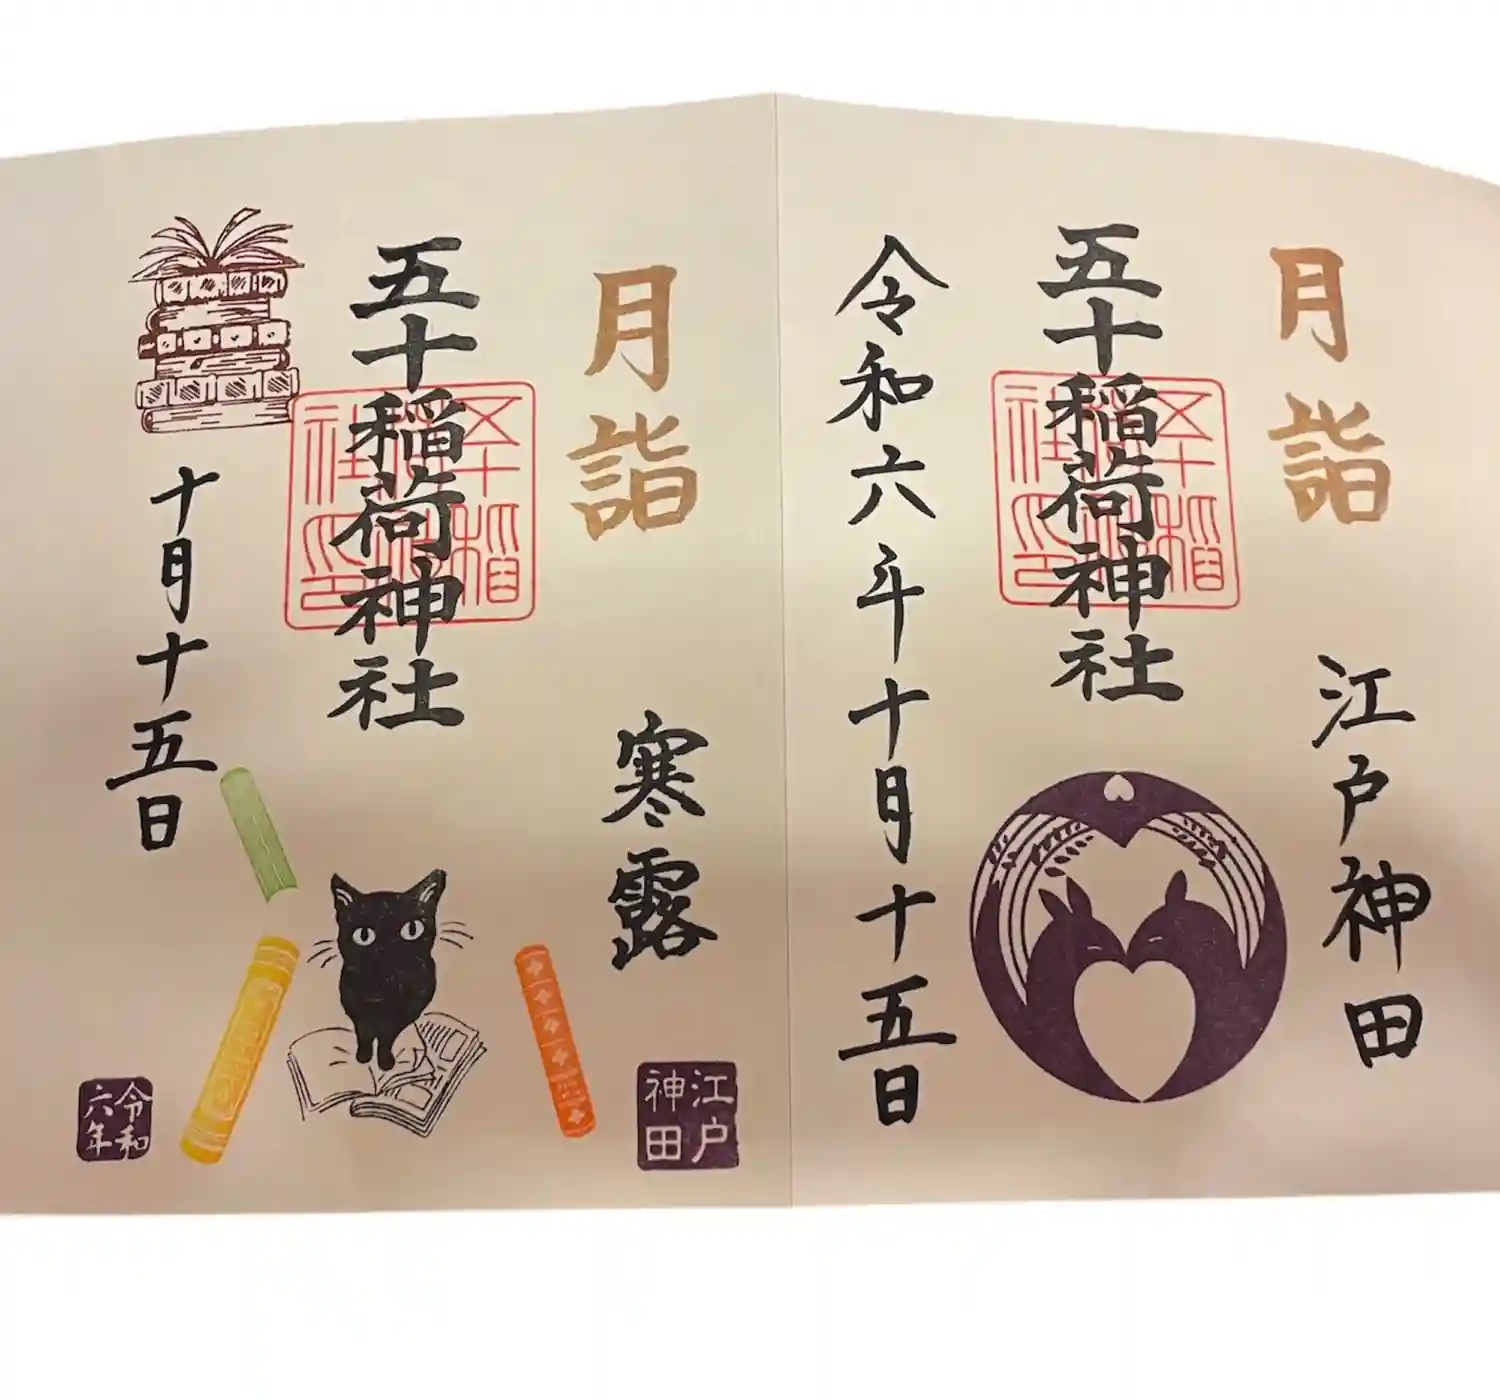 月詣
江戸神田
五十稲荷神社
令和六年十月十五日
月詣
寒露
五十稲荷神社
十月十五日
江戸
神田
令和
六年